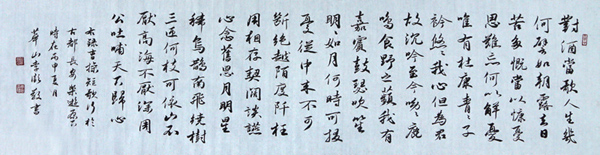 對酒當歌人生幾
何譬如朝露去日
苦多慨當以慷憂
思難忘何以解憂
唯有杜康青青子
衿悠悠我心但為君
故沉吟至今呦呦鹿
鳴食野之蘋我有
嘉賓鼓瑟吹笙
明明如月何時可掇
憂從中來不可
斷絕越陌度阡枉
用相存契闊談讌
心念舊恩月明星
稀烏鵲南飛繞樹
三匝何枝可依山不
厭高海不厭深周
公吐哺天下歸心
曹操短歌行於
古都長安樂遊原
時在丙申夏月
華山李書